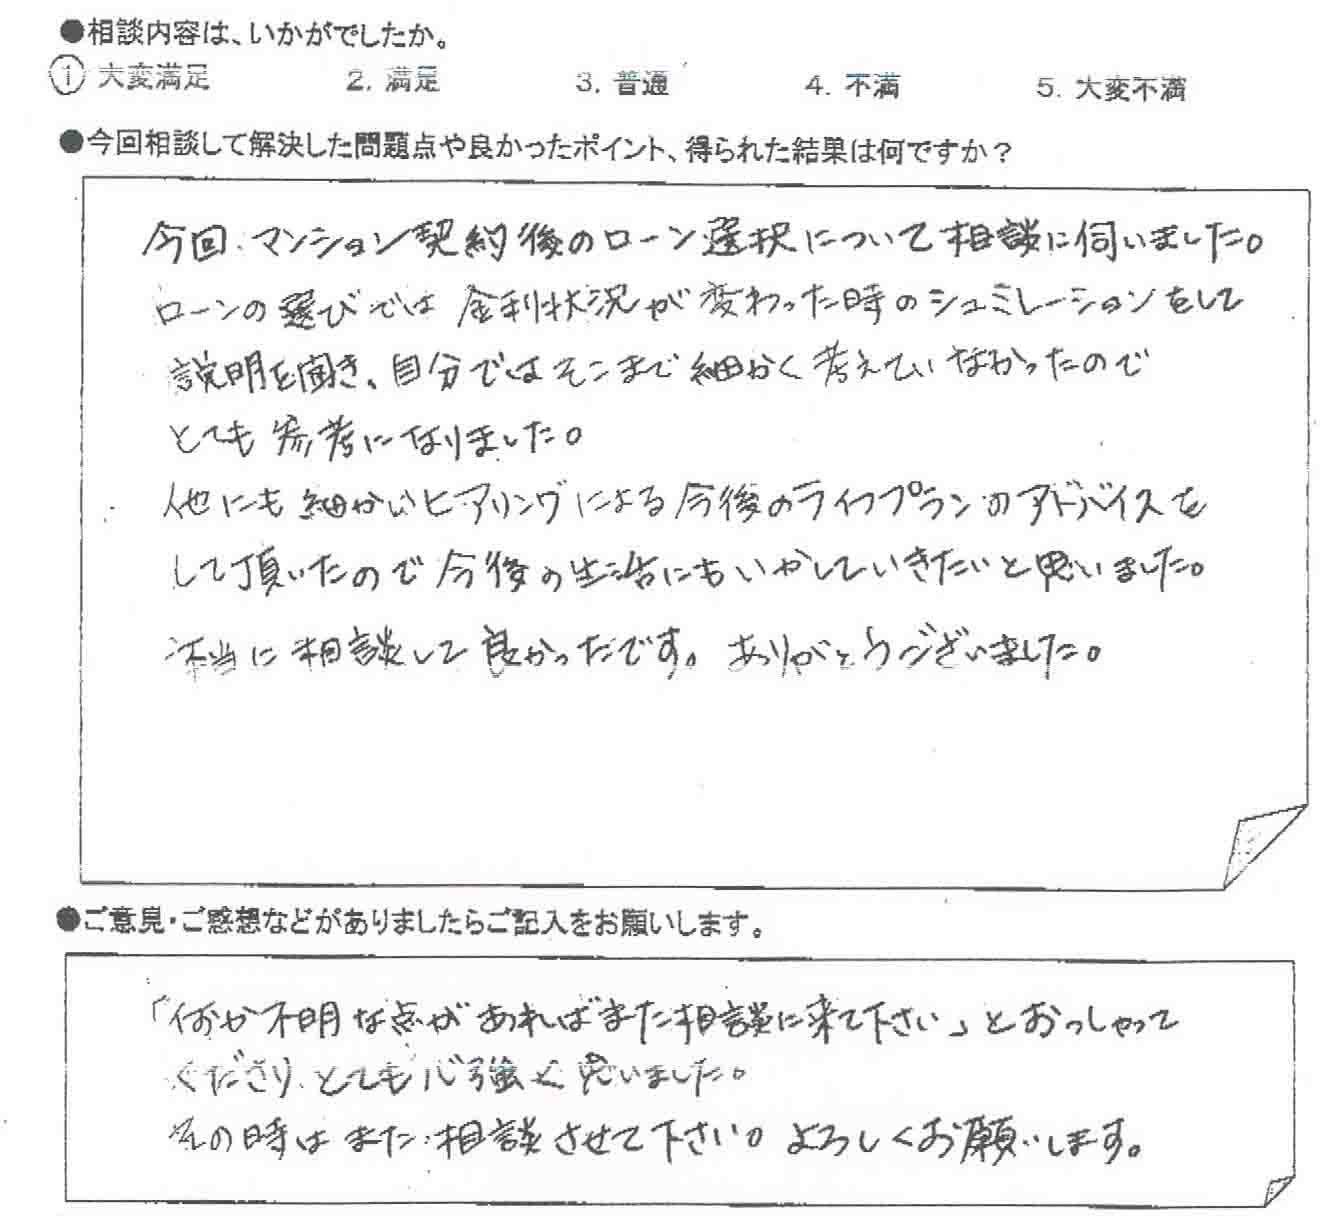 ●相談内容は、いかがでしたか。
① 大変満足 2. 満足 3. 普通 4. 不満 5. 大変不満
●今回相談して解決した問題点や良かったポイント、得られた結果は何ですか?
今回、マンション契約後のローン選択について相談に伺いました。
ローンの選びでは金利状況が変わった時のシュミレーションをして
説明を聞き、自分ではそこまで細かく考えていなかったので
とても参考になりました。
他にも細かいヒアリングによる今後のライフプランのアドバイスを
して頂いたので今後の生活にもいかしていきたいと思いました。
本当に相談して良かったです。ありがとうございました。
●ご意見・ご感想などがありましたらご記入をお願いします。
「何か不明な点があればまた相談に来て下さい」とおっしゃって
くださり、とても心強く思いました。
その時はまた相談させて下さい。よろしくお願いします。